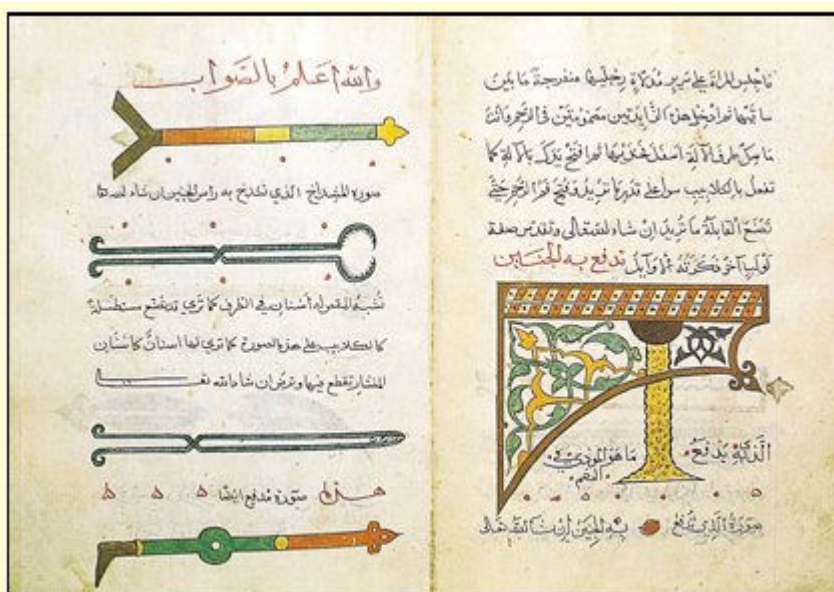 فاجلس المراة على سرير مدلاة رجليها منفرجة ما بين
ساقيها ثم ادخل هذه الزائدتين مضمومتين في الرحم وانت
ماسك طرف الآلة اسفل فخذيها ثم افتح يدك بالالة كما
تفعل بالكلاليب سوا على قدر ما تريد فتح فم الرحم حتى
تصنع القابلة ما تريد ان شاء الله تعالى وتقدس صفة
لولب آخر ذكرته تدفع به الجنين
الذي يدفع ما هو
صورة الذي تدفع به الجنين إن شا الله تعالى
والله اعلم بالصواب
صورة المشداخ الذي تشدخ به راس الجنين ان شاء الله
تشبه المقص له أسنان في الطرف كما ترى قد تصنع مستطيلة
كالكلاليب على هذه الصورة كما ترى لها اسنان كأسنان
المنشار تقطع فيها وترض ان شاء الله تعالى
هذه صورة مدفع ايضا